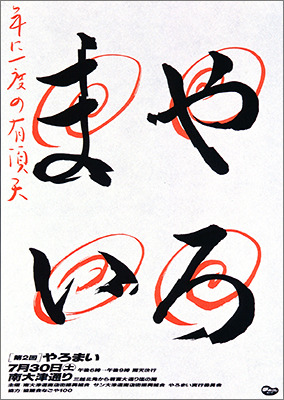 やろ
まい
年に一度の有頂天
[第2回] やろまい
7月30日(土) 午後6時-午後9時 雨天決行
南大津通り 三越北角から若宮大通り迄の間
主催 南大津通商店街振興組合 サン大津通商店街振興組合 やろまい実行委員会
協力 なごや100